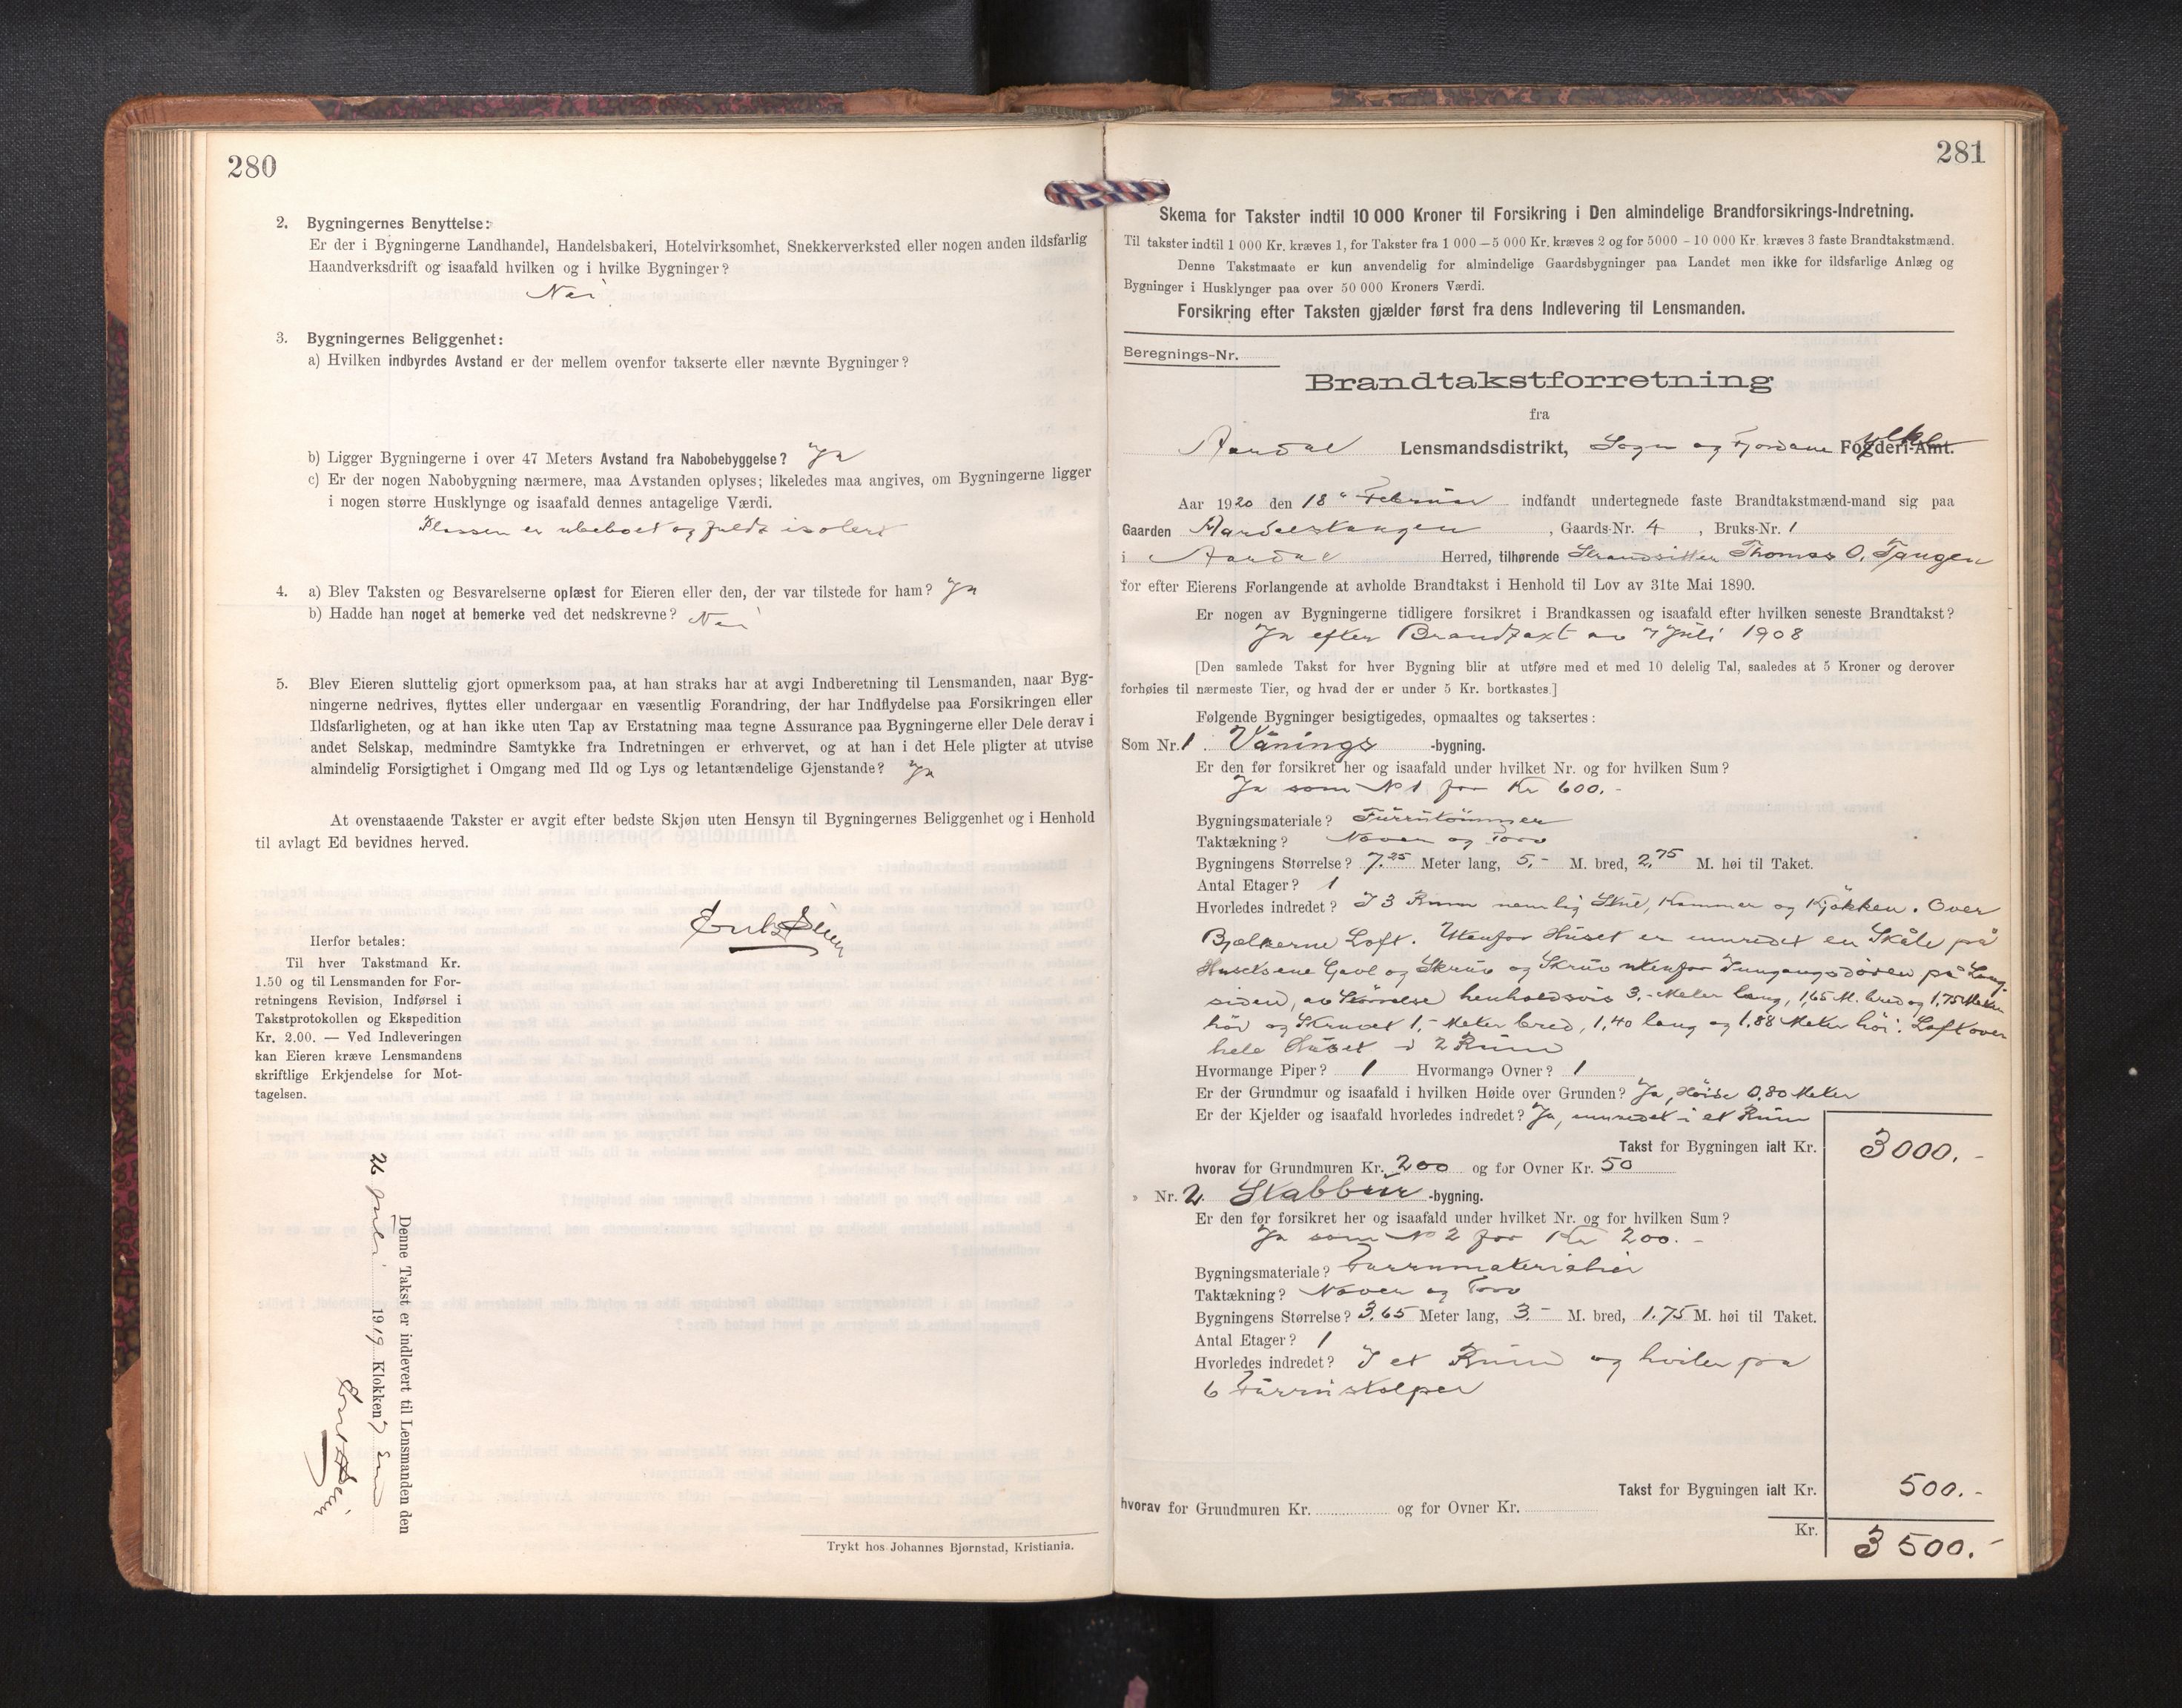 280
2. Bygningernes Benyttelse:
Er der i Bygningerne Landhandel, Handelsbakeri, Hotelvirksomhet, Snekkerverksted eller nogen anden ildsfarlig
Haandverksdrift og isaafald hvilken og i hvilke Bygninger?
Nei
3. Bygningernes Beliggenhet:
a) Hvilken indbyrdes Avstand er der mellem ovenfor takserte eller nævnte Bygninger?
b) Ligger Bygningerne i over 47 Meters Avstand fra Nabobebyggelse? Ja
c) Er der nogen Nabobygning nærmere, maa Avstanden oplyses; likeledes maa angives, om Bygningerne ligger
i nogen større Husklynge og isaafald dennes antagelige Værdi.
Plassen er ubeboet og fuldt isolert
4. a) Blev Taksten og Besvarelserne oplæst for Eieren eller den, der var tilstede for ham? Ja
b) Hadde han noget at bemerke ved det nedskrevne? Nei
5. Blev Eieren sluttelig gjort opmerksom paa, at han straks har at avgi Indberetning til Lensmanden, naar Byg-
ningerne nedrives, flyttes eller undergaar en væsentlig Forandring, der har Indflydelse paa Forsikringen eller
Ildsfarligheten, og at han ikke uten Tap av Erstatning maa tegne Assurance paa Bygningerne eller Dele derav i
andet Selskap, medmindre Samtykke fra Indretningen er erhvervet, og at han i det Hele pligter at utvise
almindelig Forsigtighet i Omgang med Ild og Lys og letantændelige Gjenstande? Ja
At ovenstaaende Takster er avgit efter bedste Skjøn uten Hensyn til Bygningernes Beliggenhet og i Henhold
til avlagt Ed bevidnes herved.
Herfor betales:
Til hver Takstmand Kr.
1.50 og til Lensmanden for For-
retningens Revision, Indførsel i
Takstprotokollen og Ekspedition
Kr. 2.00. — Ved Indleveringen
kan Eieren kræve Lensmandens
skriftlige Erkjendelse for Mot-
tagelsen.
Denne Takst er indlevert til Lensmanden den
26 Juli 1919 Klokken 7 Em
Trykt hos Johannes Bjørnstad, Kristiania.
281
Skema for Takster indtil 10 000 Kroner til Forsikring i Den almindelige Brandforsikrings-Indretning.
Til takster indtil 1 000 Kr. kræves 1, for Takster fra 1 000 – 5 000 Kr. kræves 2 og for 5000 – 10 000 Kr. kræves 3 faste Brandtakstmænd.
Denne Takstmaate er kun anvendelig for almindelige Gaardsbygninger paa Landet men ikke for ildsfarlige Anlæg og
Bygninger i Husklynger paa over 50 000 Kroners Værdi.
Forsikring efter Taksten gjælder først fra dens Indlevering til Lensmanden.
Beregnings-Nr.
Brandtakstforretning
fra
Aardal Lensmandsdistrikt, Sogn og Fjordane Fylke Fogderi-Amt.
Aar 1920 den 18de Februar indfandt undertegnede faste Brandtakstmænd-mand sig paa
Gaarden Aardalstangen, Gaards-Nr. 4, Bruks-Nr. 1
i Aardal Herred, tilhørende Strandsitter Thomas O. Tangen
for efter Eierens Forlangende at avholde Brandtakst i Henhold til Lov av 31te Mai 1890.
Er nogen av Bygningerne tidligere forsikret i Brandkassen og isaafald efter hvilken seneste Brandtakst?
Ja efter Brandtaxt av 7 Juli 1908
[Den samlede Takst for hver Bygning blir at utføre med et med 10 delelig Tal, saaledes at 5 Kroner og derover
forhøies til nærmeste Tier, og hvad der er under 5 Kr. bortkastes.]
Følgende Bygninger besigtigedes, opmaaltes og taksertes:
Som Nr. 1. Vånings -bygning.
Er den før forsikret her og isaafald under hvilket Nr. og for hvilken Sum?
Ja som No 1 for Kr 600.-
Bygningsmateriale? Furrutömmer
Taktækning? Næver og Torv
Bygningens Størrelse? 7.25 Meter lang, 5.- M. bred, 2.75 M. høi til Taket.
Antal Etager? 1
Hvorledes indredet? I 3 Rum nemlig Stue, Kammer og Kjökken. Over
Bjælkerne Loft. Utenfor Huset er innredet en Skåle på
Husets ene Gavl og Skruv og Skruv utenfor Inngangsdören på Lang-
siden, av Störrelse henholdsvis 3.- Meter lang, 1,65 M. bred og 1,75 Meter
höi og Skruvet 1,- Meter bred, 1,40 lang og 1.88 Meter höi. Loft over
hele Huset i 2 Rum
Hvormange Piper? 1 Hvormange Ovner? 1
Er der Grundmur og isaafald i hvilken Høide over Grunden? Ja, Höide 0.80 Meter
Er der Kjelder og isaafald hvorledes indredet? Ja, innredet i et Rum
Takst for Bygningen ialt Kr. 3000.-
hvorav for Grundmuren Kr. 200 og for Ovner Kr. 50
» Nr. 2. Stabbur -bygning.
Er den før forsikret her og isaafald under hvilket Nr. og for hvilken Sum?
Ja som No 2 for Kr 200.-
Bygningsmateriale? Furrumaterialier
Taktækning? Næver og Torv
Bygningens Størrelse? 3.65 Meter lang, 3.- M. bred, 1.75 M. høi til Taket.
Antal Etager? 1
Hvorledes indredet? I et Rum og hviler paa
6 Furrustolper
Takst for Bygningen ialt Kr. 500.-
hvorav for Grundmuren Kr. og for Ovner Kr.
Kr. 3500.-